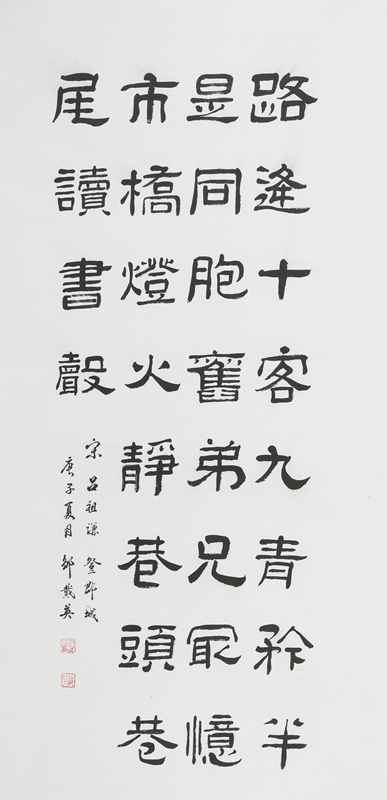 路逢十客九青衿半
是同胞舊弟兄冣憶
市橋燈火靜巷頭巷
尾讀書聲
宋 呂祖謙 登 城
庚子夏月 鄒戴英